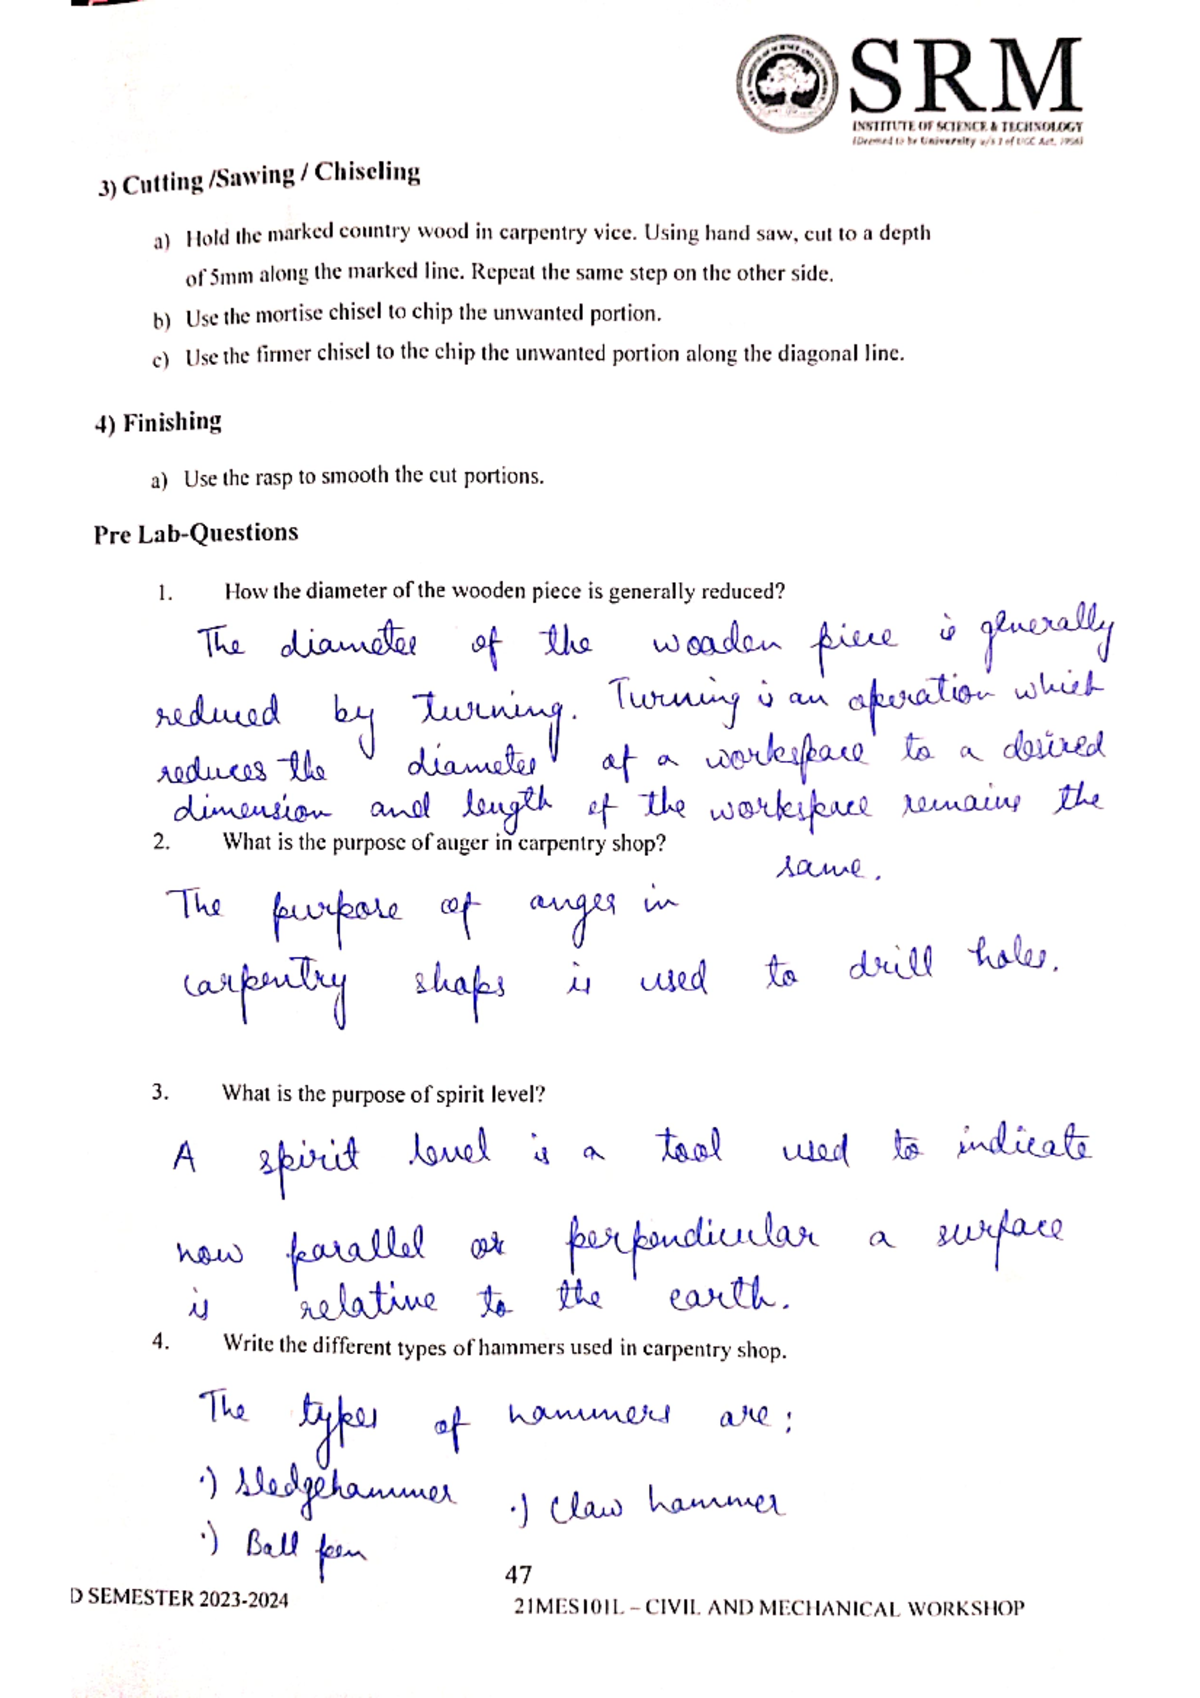 SRM
INSTITUTE OF SCIENCE & TECHNOLOGY
(Deemed to be University u/s 3 of UGC Act, 1956)
3) Cutting /Sawing / Chiseling
a) Hold the marked country wood in carpentry vice. Using hand saw, cut to a depth
of 5mm along the marked line. Repeat the same step on the other side.
b) Use the mortise chisel to chip the unwanted portion.
c) Use the firmer chisel to the chip the unwanted portion along the diagonal line.
4) Finishing
a) Use the rasp to smooth the cut portions.
Pre Lab-Questions
1. How the diameter of the wooden piece is generally reduced?
The diameter of the wooden piece is generally
reduced by turning. Turning is an operation which
reduces the diameter of a workspace to a desired
dimension and length of the workspace remains the
same.
2. What is the purpose of auger in carpentry shop?
The purpose of anger in
carpentry shops is used to drill holes.
3. What is the purpose of spirit level?
A spirit level is a tool used to indicate
how parallel or perpendicular a surface
is relative to the earth.
4. Write the different types of hammers used in carpentry shop.
The types of hammers are:
·) Sledgehammer ·) Claw hammer
·) Ball peen
47
D SEMESTER 2023-2024 21MES101L – CIVIL AND MECHANICAL WORKSHOP